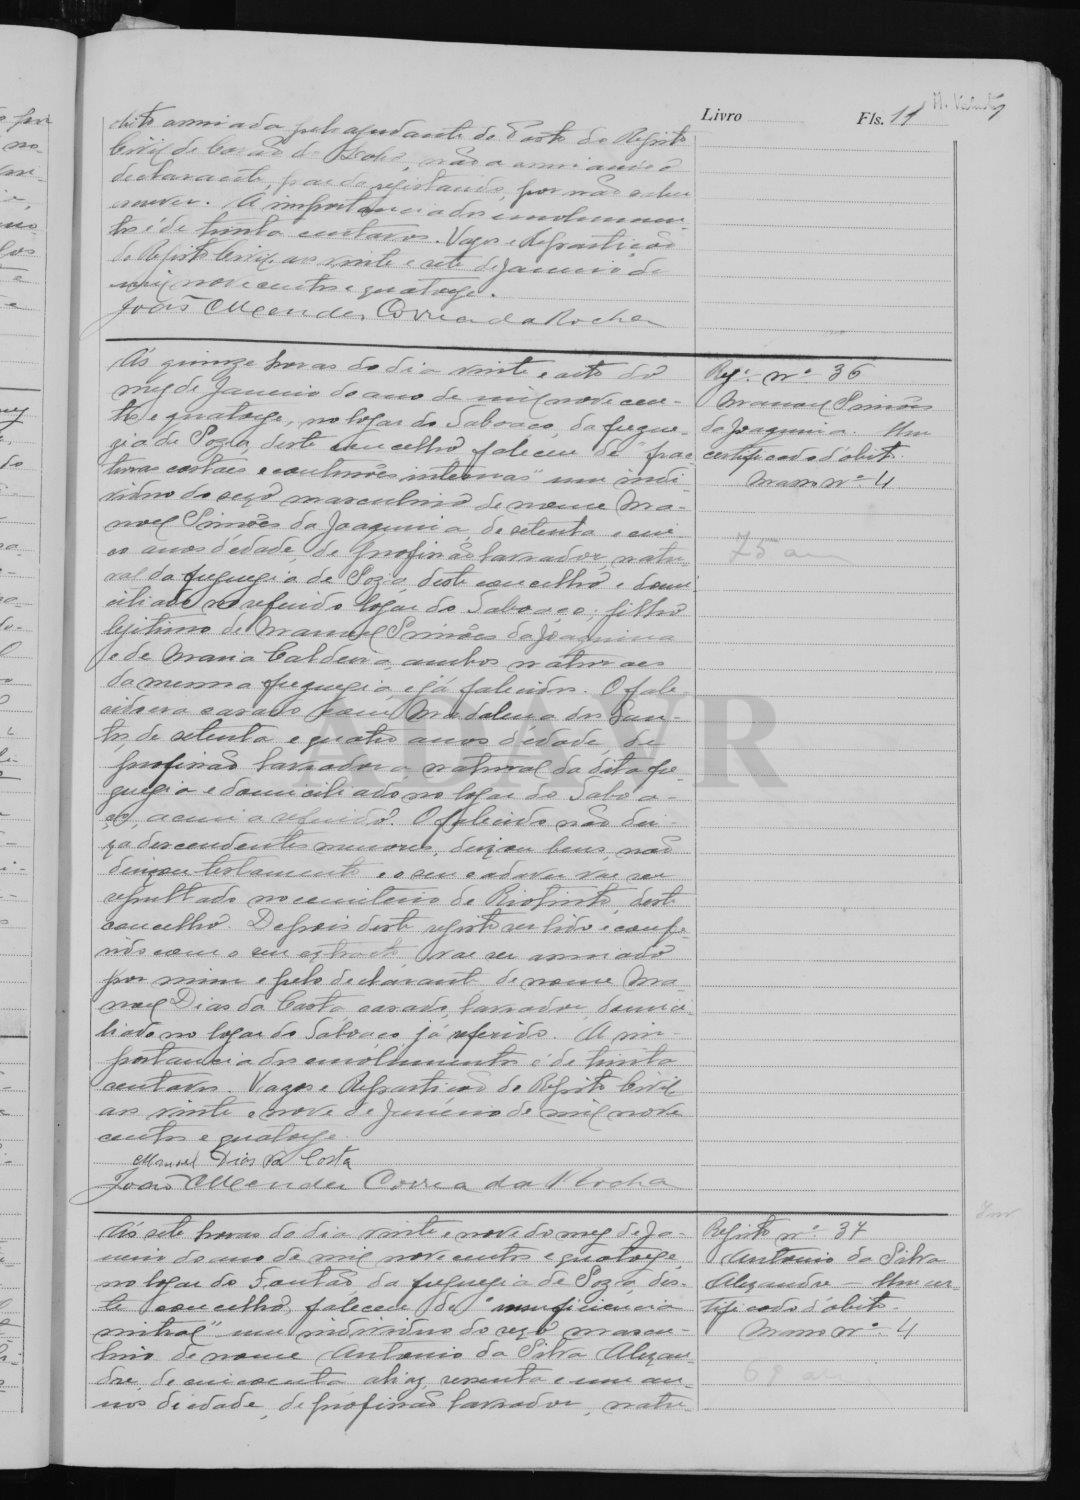 Livro Fls. 11
obito assinada pelo ajudante do Posto do Registo
Civil de não assinando o
declarante, pae do registando, por não saber
escrever. A importancia dos emolumen-
tos é de trinta centavos. Vagos e Repartição
do Registo Civil aos vinte e sete de Janeiro de
mil novecentos e quatorze.
João Mendes Correia da Rocha
Ás quinze horas do dia vinte e oito do
mez de Janeiro do ano de mil novecen-
tos e quatorze, no logar do Saboaço, da fregue-
zia de Soza, deste concelho faleceu de "frac-
turas costaes e contusões internas" um indi-
viduo do sexo masculino de nome Ma-
noel Simões da Joaquina, de setenta e cin-
co anos d'edade, de profissão lavrador, natu-
ral da freguezia de Soza, deste concelho e domi-
ciliado no referido logar do Saboaço; filho
legitimo de Manoel Simões da Joaquina
e de Maria Caldeira, ambos naturaes
da mesma freguezia, e já falecidos. O fale-
cido era casado com Madalena dos San-
tos, de setenta e quatro anos d'edade, de
profissão lavradora natural da dita fre-
guezia e domiciliado no logar do Saboa-
ço, acima referido. O falecido não dei-
xa descendentes menores, deixou bens, não
deixou testamento e o seu cadaver vae ser
sepultado no cemiterio de Riotinto, deste
concelho. Depois deste registo ser lido e confe-
rido com o seu extracto vae ser assinado
por mim e pelo declarante de nome Ma-
noel Dias da Costa, casado, lavrador, domici-
liado no logar do Saboaço, já referido. A im-
portancia dos emolumentos é de trinta
centavos. Vagos e Repartição do Registo Civil
aos vinte e nove de Janeiro de mil nove
centos e quatorze.
Manuel Dias da Costa
João Mendes Correia da Rocha
Reg.º nº 36
Manoel Simões
da Joaquina. Um
certificado d'obito.
Maço nº 4
75 an
Ás sete horas do dia vinte e nove do mez de Ja-
neiro do ano de mil novecentos e quatorze,
no logar do Fontão, da freguezia de Soza, des-
te concelho, faleceu de "insuficiencia
mitral" um individuo do sexo mascu-
lino de nome Antonio da Silva Alexan-
dre, de cincoenta aliaz, sessenta e um an-
nos d'edade, de profissão lavrador, natu-
Registo nº 37
Antonio da Silva
Alexandre — Um cer-
tificado d'obito.
Maço nº 4
ADAVR